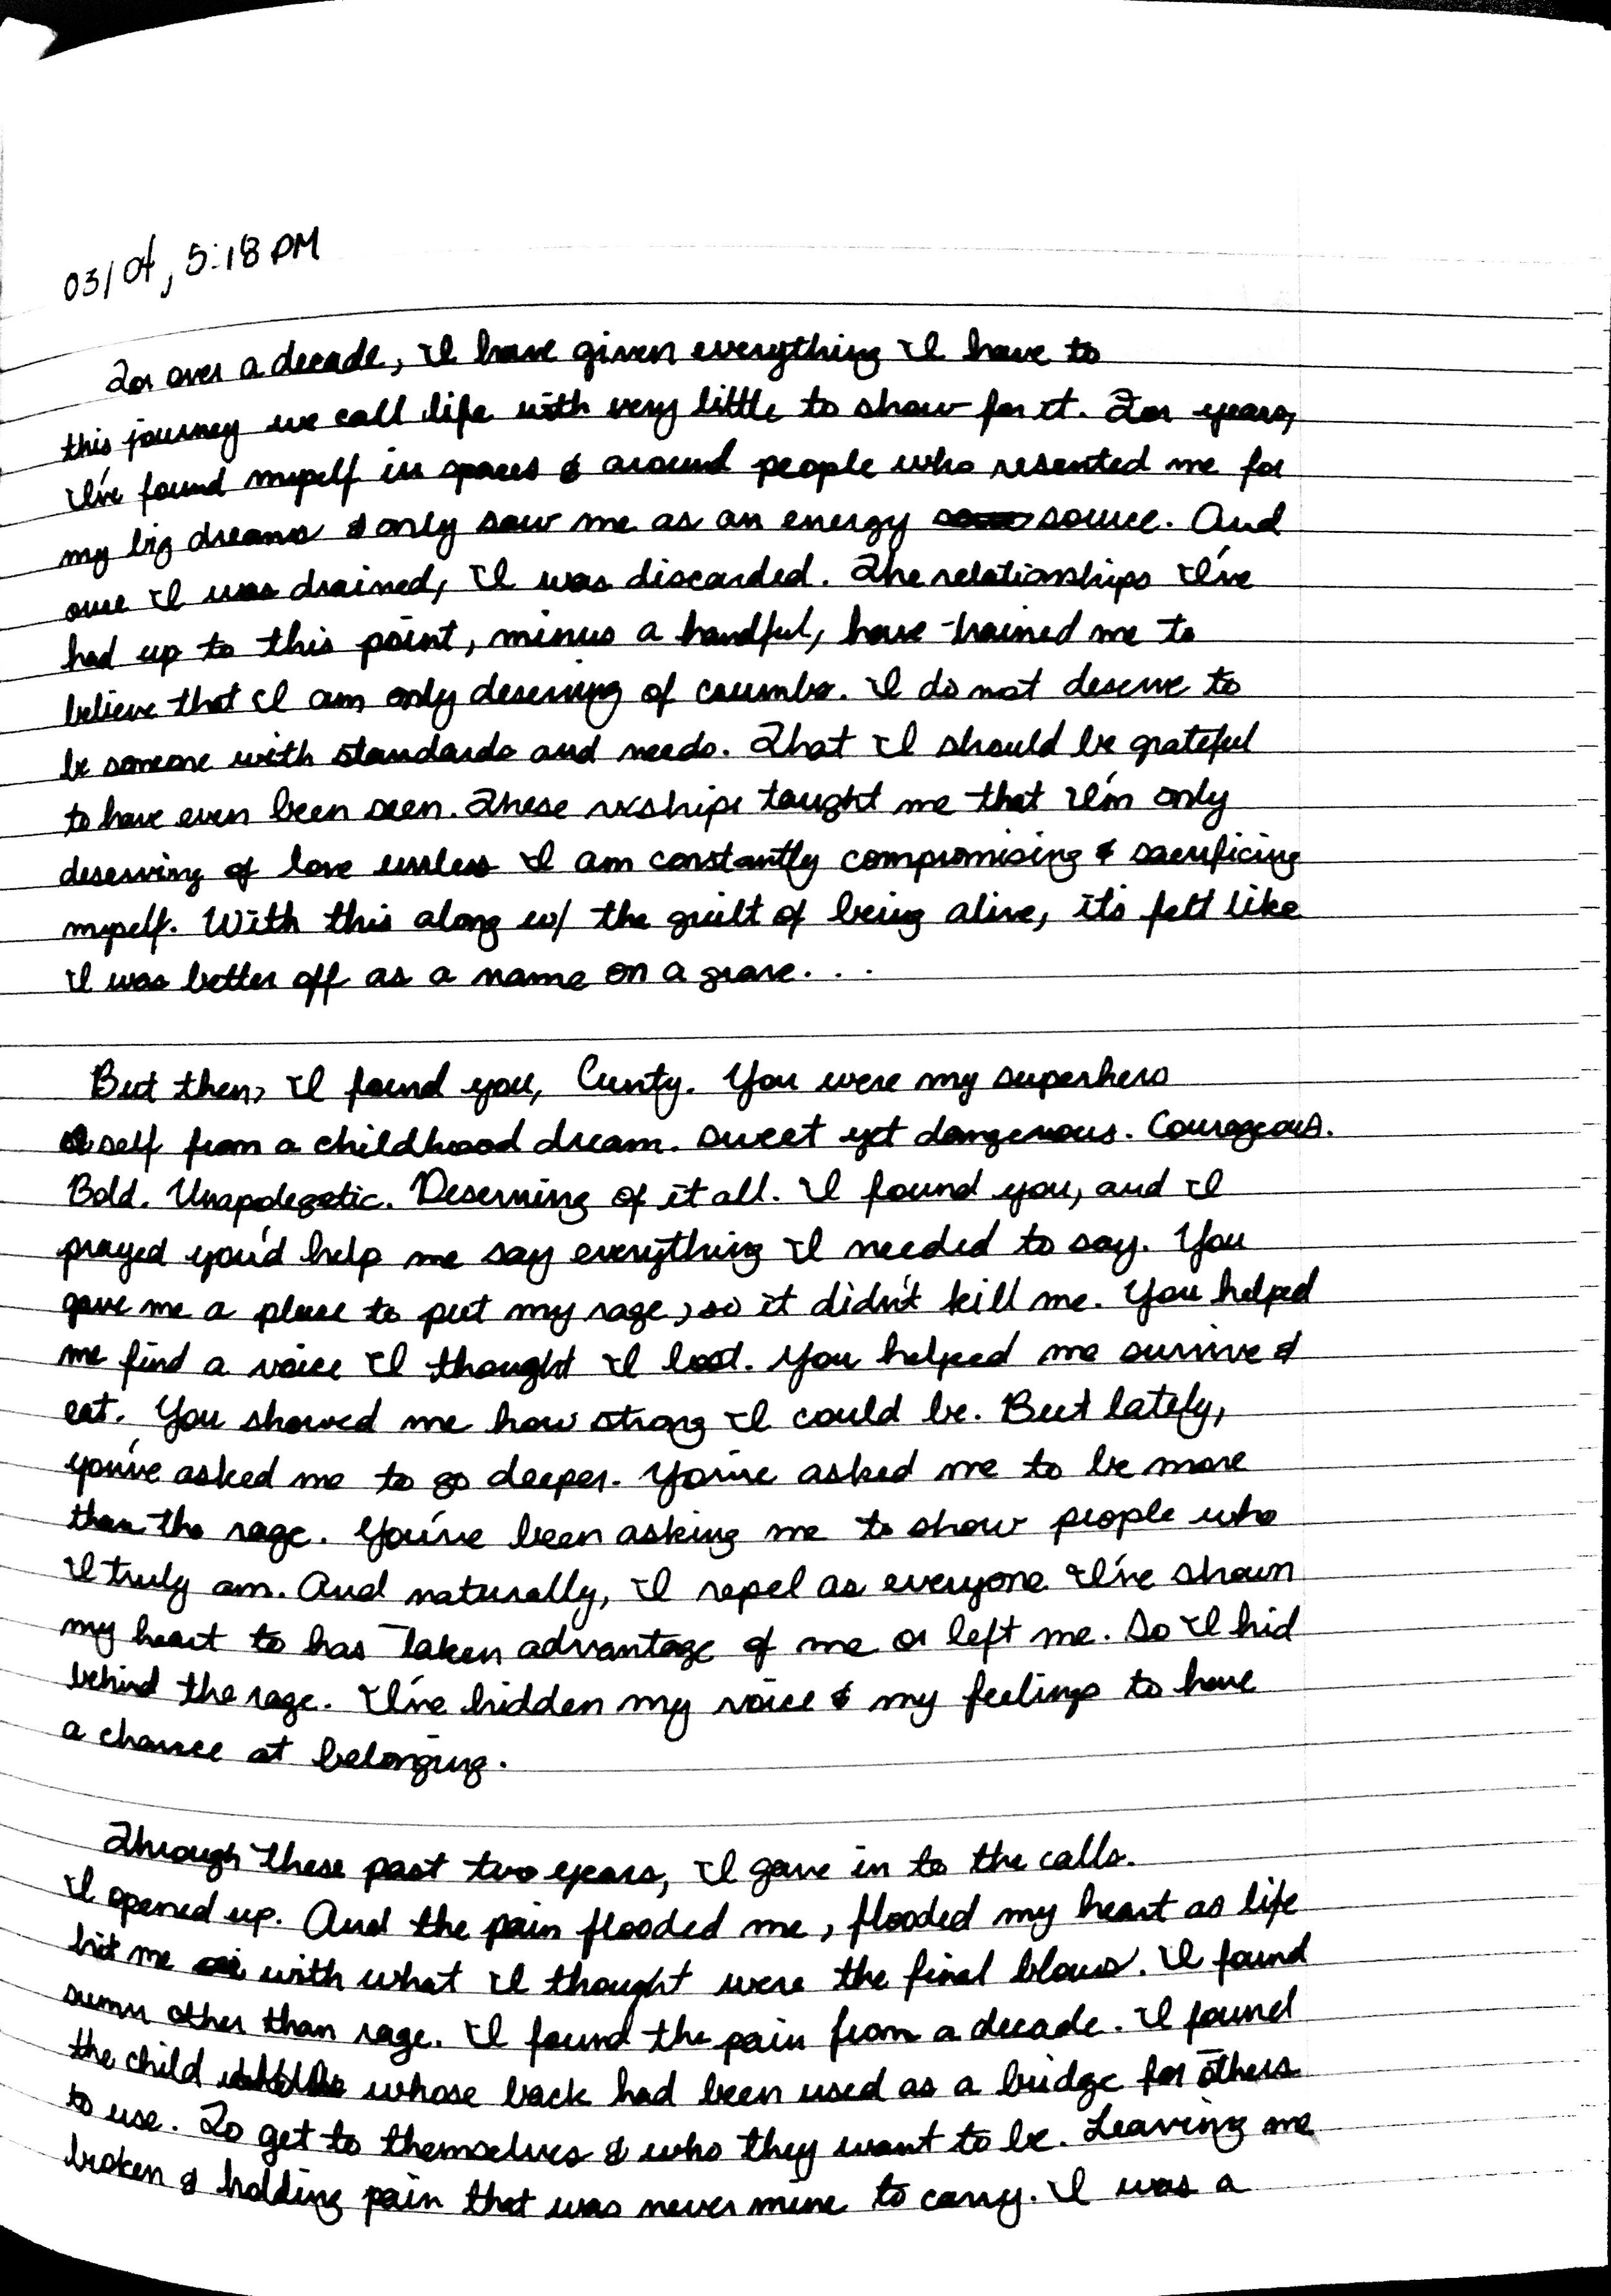 03/04, 5:18 PM
For over a decade, I have given everything I have to
this journey we call life with very little to show for it. For years,
I've found myself in spaces & around people who resented me for
my big dreams & only saw me as an energy source. And
once I was drained, I was discarded. The relationships I've
had up to this point, minus a handful, have trained me to
believe that I am only deserving of crumbs. I do not deserve to
be someone with standards and needs. That I should be grateful
to have even been seen. These rxships taught me that I'm only
deserving of love unless I am constantly compromising & sacrificing
myself. With this along w/ the guilt of being alive, it's felt like
I was better off as a name on a grave...
But then, I found you, Cunty. You were my superhero
self from a childhood dream. Sweet yet dangerous. Courageous.
Bold. Unapologetic. Deserving of it all. I found you, and I
prayed you'd help me say everything I needed to say. You
gave me a place to put my rage, so it didn't kill me. You helped
me find a voice I thought I lost. You helped me survive &
eat. You showed me how strong I could be. But lately,
you've asked me to go deeper. You've asked me to be more
than the rage. You've been asking me to show people who
I truly am. And naturally, I repel as everyone I've shown
my heart to has taken advantage of me or left me. So I hid
behind the rage. I've hidden my voice & my feelings to have
a chance at belonging.
Through these past two years, I gave in to the calls.
I opened up. And the pain flooded me, flooded my heart as life
hit me with what I thought were the final blows. I found
sumn other than rage. I found the pain from a decade. I found
the child whose back had been used as a bridge for others
to use. To get to themselves & who they want to be. Leaving me
broken & holding pain that was never mine to carry. I was a